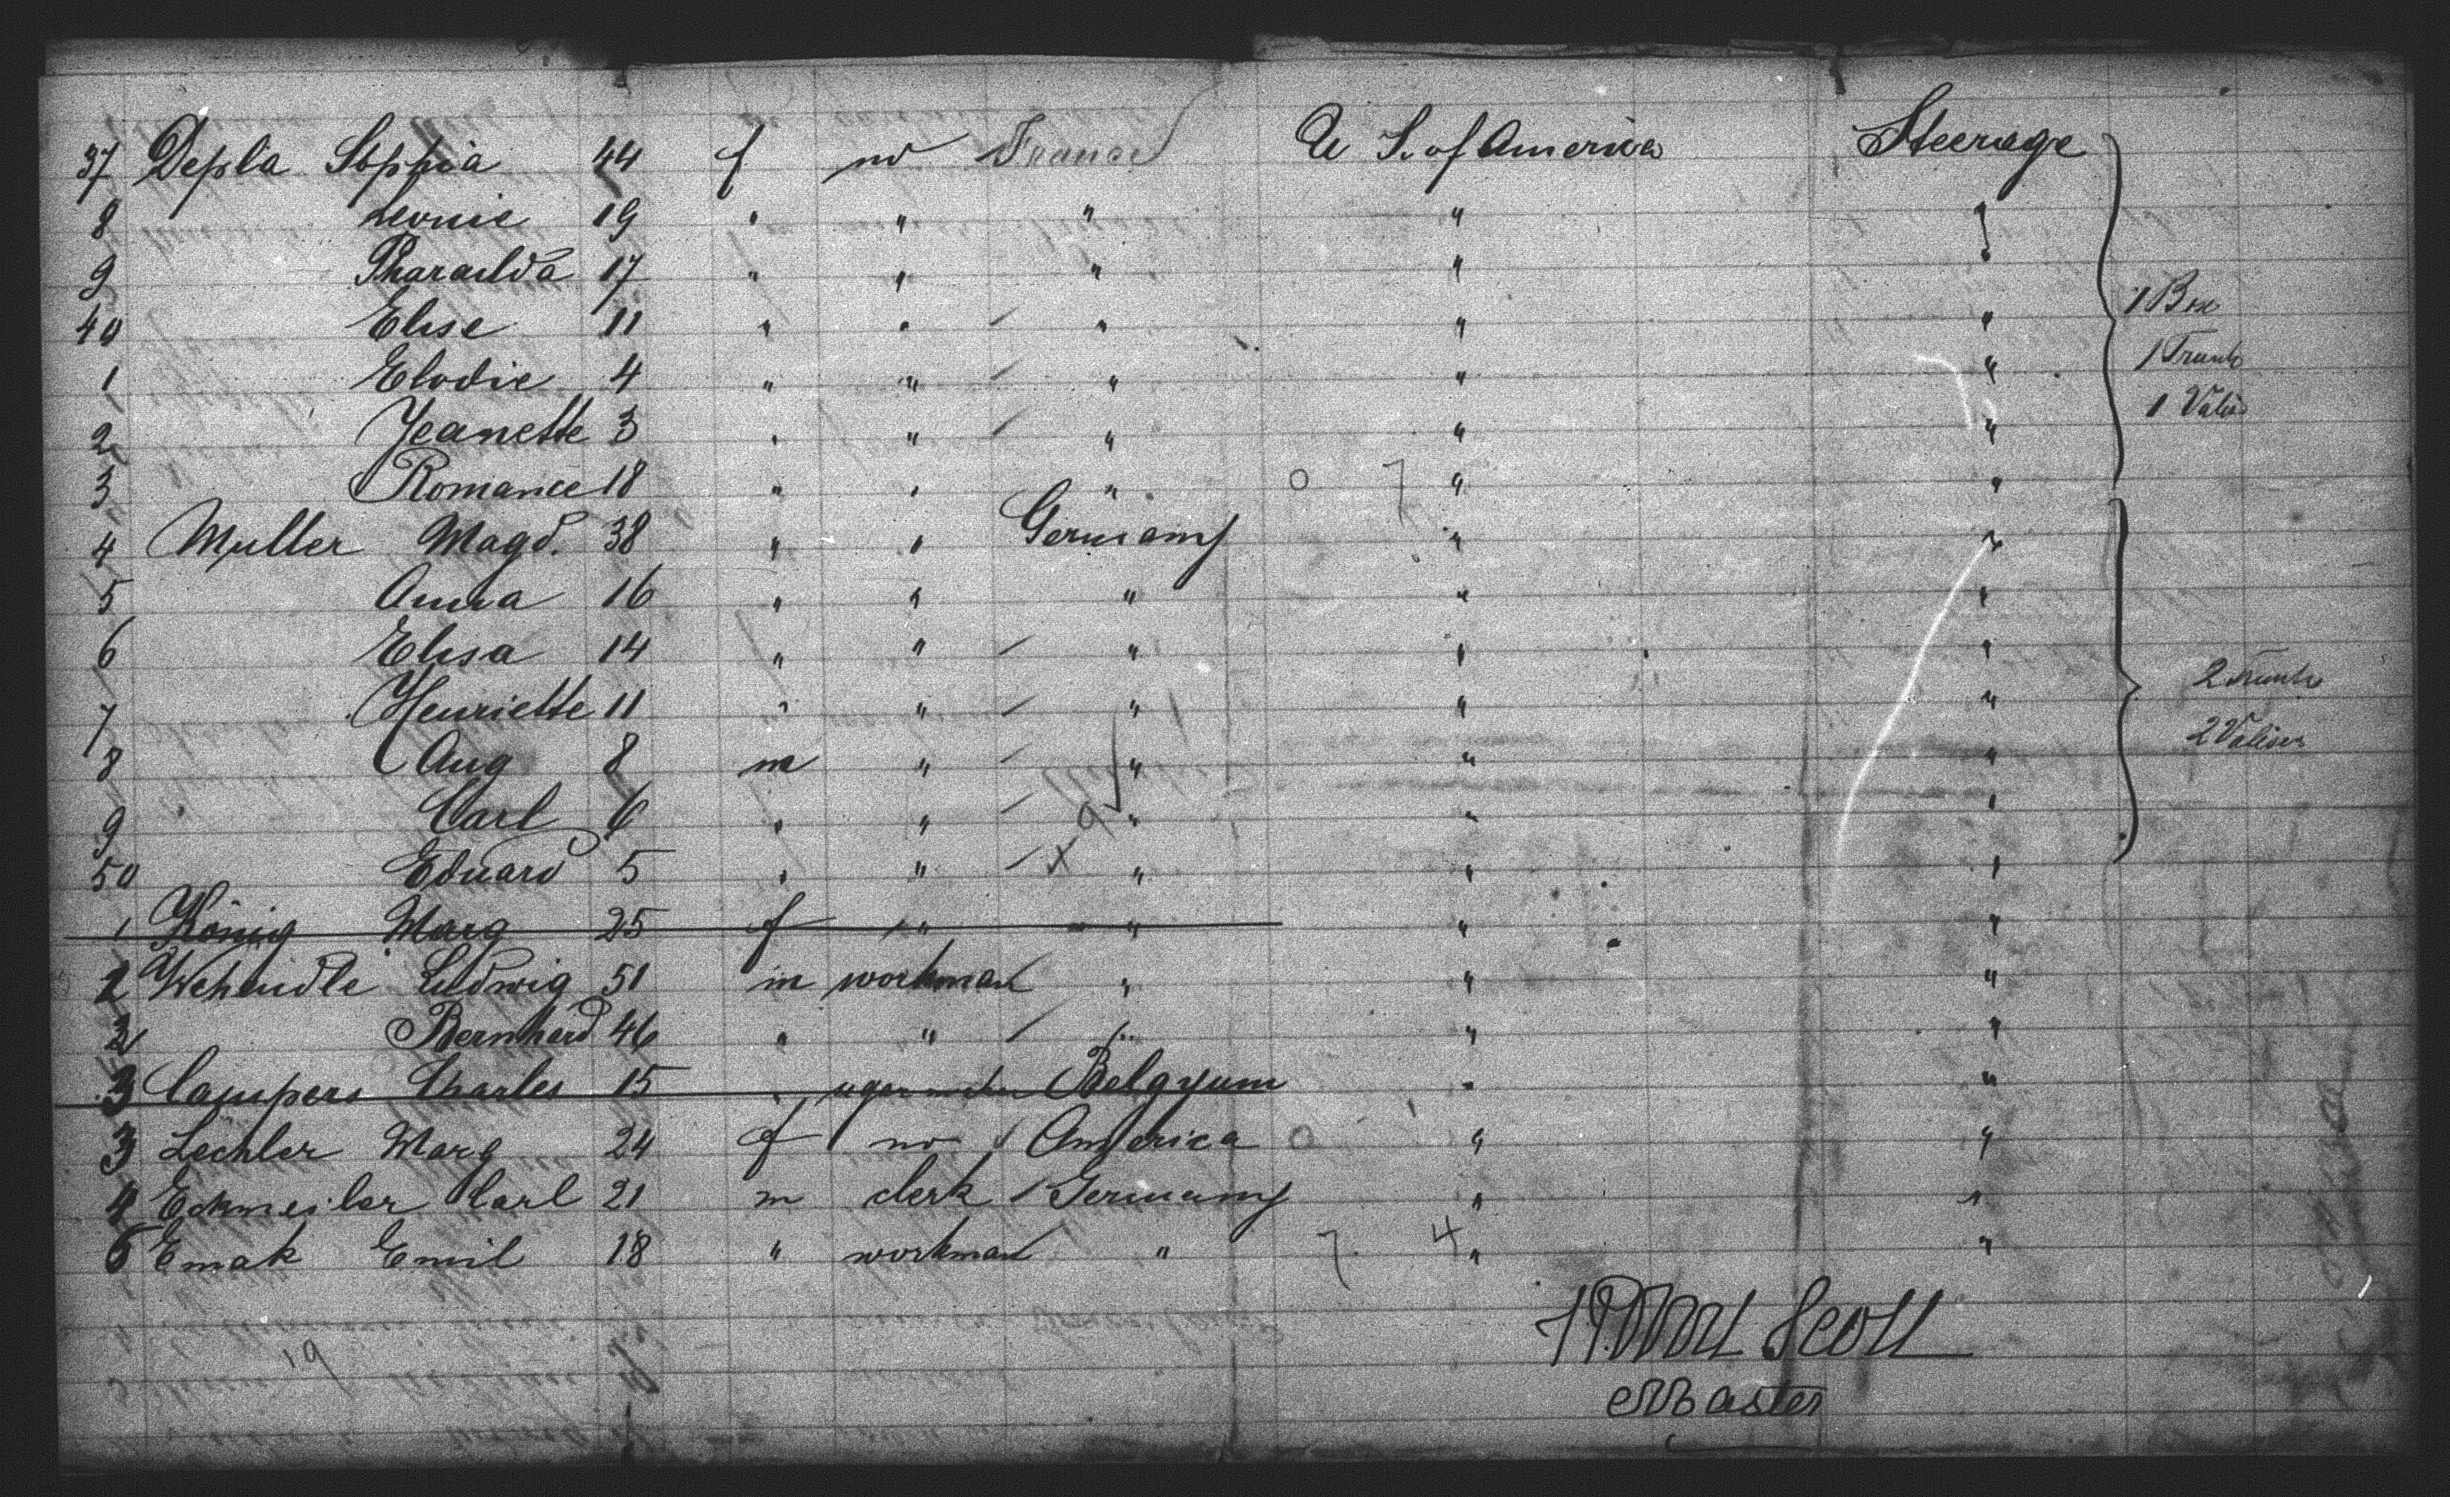 37 Depla Sophia 44 f no France U S. of America Steerage
8 Leonie 19 " " " " "
9 Pharailda 17 " " " " "
40 Elise 11 " " " " " 1 Box
1 Elodie 4 " " " " " 1 Trunk
2 Jeanette 3 " " " " " 1 Valise
3 Romanie 18 " " " 0 7 " "
4 Muller Magd. 38 " " Germany " "
5 Anna 16 " " " " "
6 Elisa 14 " " " " " 2 Trunks
7 Henriette 11 " " " " "
8 Aug 8 m " " " " 2 Valises
9 Carl 6 " " " " "
50 Eduard 5 " " x 9 " " "
1 König Marg 25 f " " " "
2 Ludwig 51 m workman " " "
2 Bernhard 46 " " " " "
3 Campers Charles 15 " Belgyum " "
3 Lechler Marg 24 f no America 0 " "
4 Eckmeiler Carl 21 m clerk Germany " "
5 Emak Emil 18 " workman " 7. 4 " "
Scott
19
Master